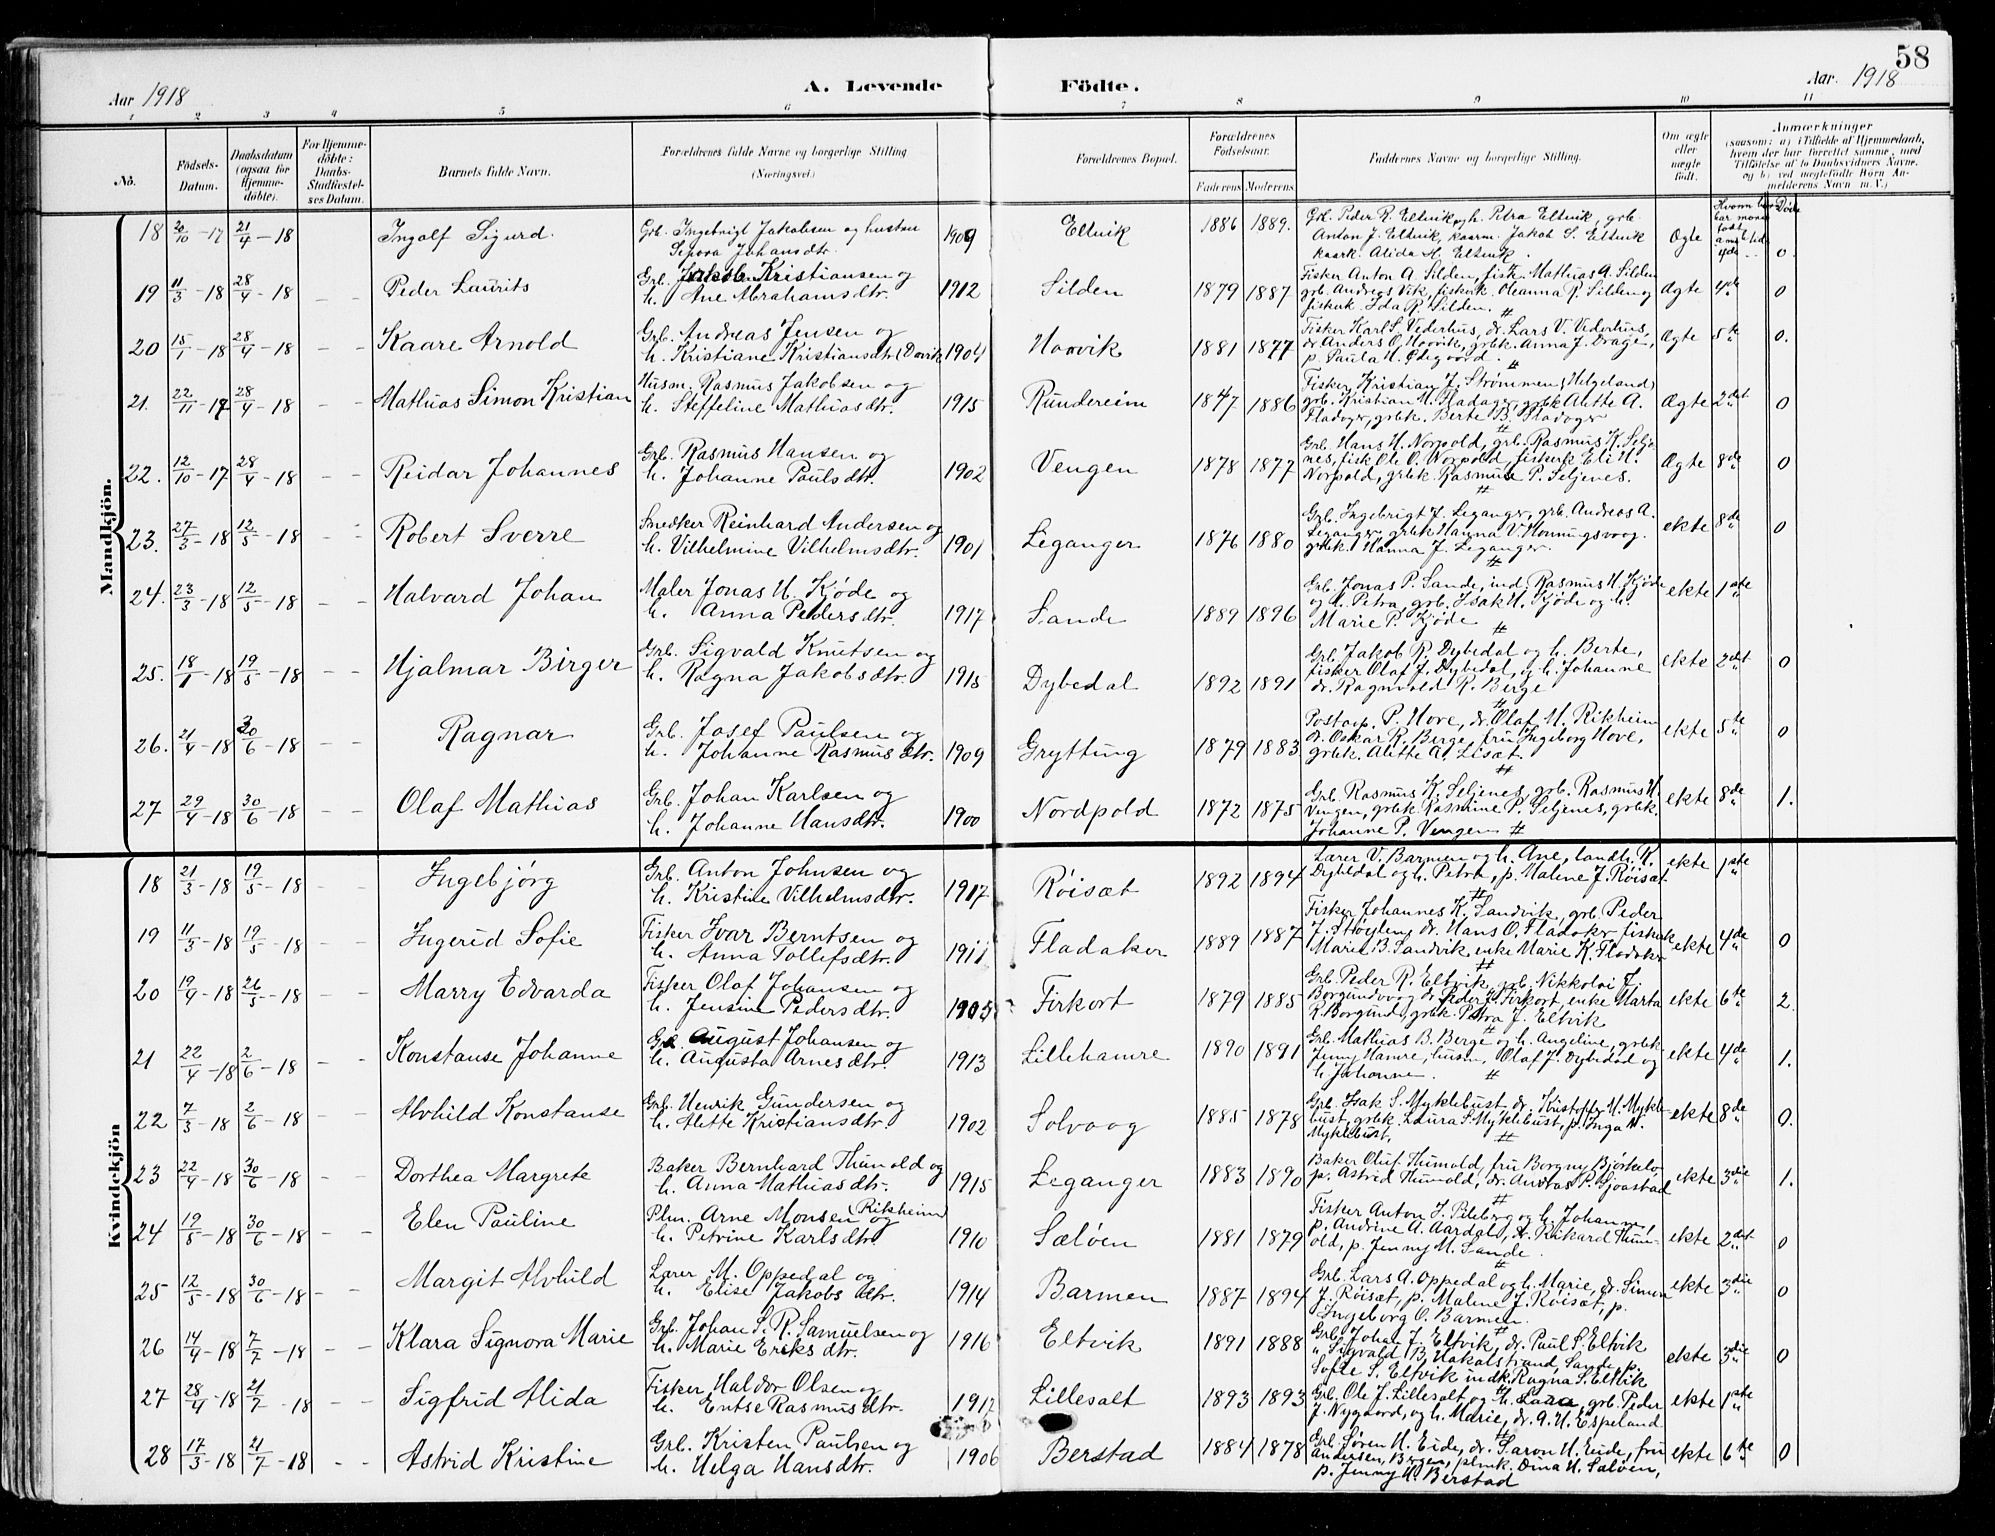 58
Aar 1918 A. Levende Födte. Aar. 1918
1 2 3 4 5 6 7 8 9 10 11
No. Födsels-Datum. Daabsdatum (ogsaa for Hjemmedöbte). For Hjemmedöbte: Daabs-Stadfæstelses Datum. Barnets fulde Navn. Forældrenes fulde Navne og borgerlige Stilling (Næringsvei) Forældrenes Bopæl. Forældrenes Födselsaar. Faderens Moderens Faddernes Navne og borgerlige Stilling. Om ægte eller uægte födt. Anmærkninger (saasom: a) i Tilfælde af Hjemmedaab, hvem der har forrettet samme, med Tilföielse af to Daabsvidners Navne, og b) ved uægtefödte Börn Anmelderens Navn m.V.)
Mandkjön.
18 20/10-17 21/4-18 Ingolf Sigurd. Grb. Ingebrigt Jakobsen og hustru Sepora Johansdtr. 1909 Eltvik 1886 1889. Grb. Peder R. Eltvik og h. Petra Eltvik, grb. Anton J. Eltvik, kaarm. Jakob S. Eltvik kaark. Alida H. Eltvik. Ægte 4de 0.
19 11/3-18 28/4-18 Peder Laurits Grb. Jakob Kristiansen og h. Ane Abrahamsdtr. 1912 Silden 1879 1887 Fisker Anton A. Silden, fisk. Mathias A. Silden grb. Andreas Vik, fiskerk. Oleanna R. Silden og fiskerk. Ida R. Silden. Ægte 4de 0
20 15/1-18 28/4-18 Kaare Arnold Grb. Andreas Jensen og h. Kristiane Kristiansdtr (Davik) 1904 Hoovik 1881 1877 Fisker Karl S. Vederhus, dr. Lars V. Vederhus, dr Anders O. Hoovik, grbk. Anna J. Drage, p. Paula H. Ødegaard. Ægte 5te 0.
21. 22/11-17 28/4-18 Mathias Simon Kristian Husm. Rasmus Jakobsen og h. Steffeline Mathiasdtr. 1915 Rundereim 1847 1886 Fisker Kristian J. Strømmen (Helgeland) grb. Kristian M. Fladager, grbk Alette A. Fladoger, grbk. Berte B. Fladoger Ægte 2det 0
22. 12/10-17 28/4-18 Reidar Johannes Grb. Rasmus Hansen og h. Johanne Paulsdtr. 1902 Vengen 1878 1877 Grb. Hans H. Norpold, grb. Rasmus K. Seljenes, fisk Ole O. Norpold, fiskerk Eli H. Norpold, grbk. Rasmine P. Seljenes. Ægte 8de 0
23. 27/3-18 12/5-18 Robert Sverre Snedker Reinhard Andersen og h. Vilhelmine Vilhelmsdtr. 1901 Leganger 1876 1880 Grb. Ingebrigt J. Leganger, grb. Andreas A. Leganger, grbk Hanna V. Honningsvaag. grbk. Hanna J. Leganger. ekte 8de 0
24. 23/3-18 12/5-18 Halvard Johan Maler Jonas H. Kjøde og h. Anna Pedersdtr. 1917 Sande 1889 1896 Grb. Jonas P. Sande, ind. Rasmus H. Kjøde og h. Petra, grb. Isak H. Kjøde og h. Marie P. Kjøde ekte 1ste
25. 18/1-18 19/5-18 Hjalmar Birger Grb. Sigvald Knutsen og h. Ragna Jakobsdtr. 1915 Dybedal 1892 1891 Grb. Jakob R. Dybedal og h. Berte, fisker Olaf J. Dybedal, og h. Johanne dr. Ragnvald R. Berge ekte 2det 0
26. 21/4-18 30/6-18 Ragnar Grb. Josef Paulsen og h. Johanne Rasmusdtr. 1909 Grytting 1879 1883 Postaap. P. Hove, dr. Olaf M. Rikheim, dr. Oskar R. Berge, fru Ingeborg Hove, grbk. Alette A. Lisæt. ekte 5te 0
27 29/4-18 30/6-18 Olaf Mathias Grb. Johan Karlsen og h. Johanne Hansdtr. 1900 Nordpold 1872 1875 Grb. Rasmus K. Seljenes, grb. Rasmus H. Vengen, grbk. Rasmine P. Seljenes, grbk. Johanne P. Vengen ekte 8de 1.
Kvindekjön
18 21/3-18 19/5-18 Ingebjørg Grb. Anton Johnsen og h. Kristine Vilhelmsdtr. 1917 Röisæt 1892 1894 Lærer V. Barmen og h. Ane, landh. K. Dybedal og h. Petra, p. Malene J. Röisæt ekte 1ste
19 11/3-18 19/5-18 Ingerid Sofie Fisker Ivar Berntsen og h. Anna Tollefsdtr. 1911 Fladaker 1889 1887 Fisker Johannes K. Sandvik, grb. Peder J. Støylen, dr. Hans O. Fladaker, fiskerk Marie B. Sandvik, enke Marie K. Fladaker ekte 4de 0
20 19/4-18 26/5-18 Marry Edvarda Fisker Olaf Johansen og h. Jensine Pedersdtr. 1905 Firkort 1879 1885 Grb. Peder R. Eltvik, grb. Nikkolai J. Borgundvaag dr. Peder J. Firkort, enke Marta R. Borgund, grbk. Petra J. Eltvik ekte 6te 2.
21 22/4-18 2/6-18 Konstanse Johanne Grb. August Johansen og h. Augusta Arnesdtr. 1913 Lillehamre 1890 1891 Grb. Mathias B. Berge og h. Angeline, grbk. Jenny Hamre, husm. Olaf J. Dybedad og h. Johanne. ekte 4de 1.
22 7/3-18 2/6-18 Alvhild Konstanse Grb. Henrik Gundersen og h. Alette Kristiansdtr. 1902 Solvaag 1885 1878 Grb. Isak S. Myklebust, dr. Kristoffer M. Myklebust, grbk. Laura S. Myklebust, p. Inga H. Myklebust. ekte 8de 0.
23 22/4-18 30/6-18 Dorthea Margrete Baker Bernhard Thunold og h. Anna Mathiasdtr. 1915 Leganger 1883 1890 Baker Oluf Thunold, fru Borgny Bjørkelo p. Astrid Thunold, dr. Andreas P. Sjoastad ekte 3die 1.
24 19/5-18 30/6-18 Elen Pauline Plm. Arne Monsen (Rikheim) og h. Petrine Karlsdtr. 1910 Sæløen 1881 1879 Fisker Anton J. Pileberg og h. Johanne, p. Andrine A. Aardal, dr. Rikard Thunold, p. Jenny M. Sande. ekte 2det 0
25 12/5-18 30/6-18 Margit Alvhild Lærer M. Oppedal og h. Elise Jakobsdtr. 1914 Barmen 1887 1894 Grb. Lars A. Oppedal og h. Marie, dr. Simon J. Röisæt, p. Malene J. Röisæt, p. Ingeborg O. Barmen. ekte 3die 0
26 14/4-18 7/7-18 Klara Signora Marie Grb. Johan S. R. Samuelsen og h. Marie Eriksdtr. 1916 Eltvik 1891 1888 Grb. Johan J. Eltvik, dr. Paul S. Eltvik " Sigvald B. Hakalstrand, Sande, p. Sofie S. Eltvik indk. Ragna S. Eltvik ekte 3die 0
27 28/4-18 21/7-18 Sigfrid Alida Fisker Haldor Olsen og h. Entse Rasmusdtr. 1917 Lillesalt 1893 1893 Grb. Ole J. Lillesalt og h. Laura, grb. Peder J. Nygaard, og h. Marie, dr. A. H. Espeland ekte 1ste 0
28 17/3-18 21/7-18 Astrid Kristine Grb. Kristen Paulsen og h. Helga Hansdtr. 1906 Berstad 1884 1878 Grb. Søren H. Eide, dr. Saron H. Eide, fru Andersen, Bergen, plmk. Dina H. Saløen, p. Jenny H. Berstad ekte 6te 0